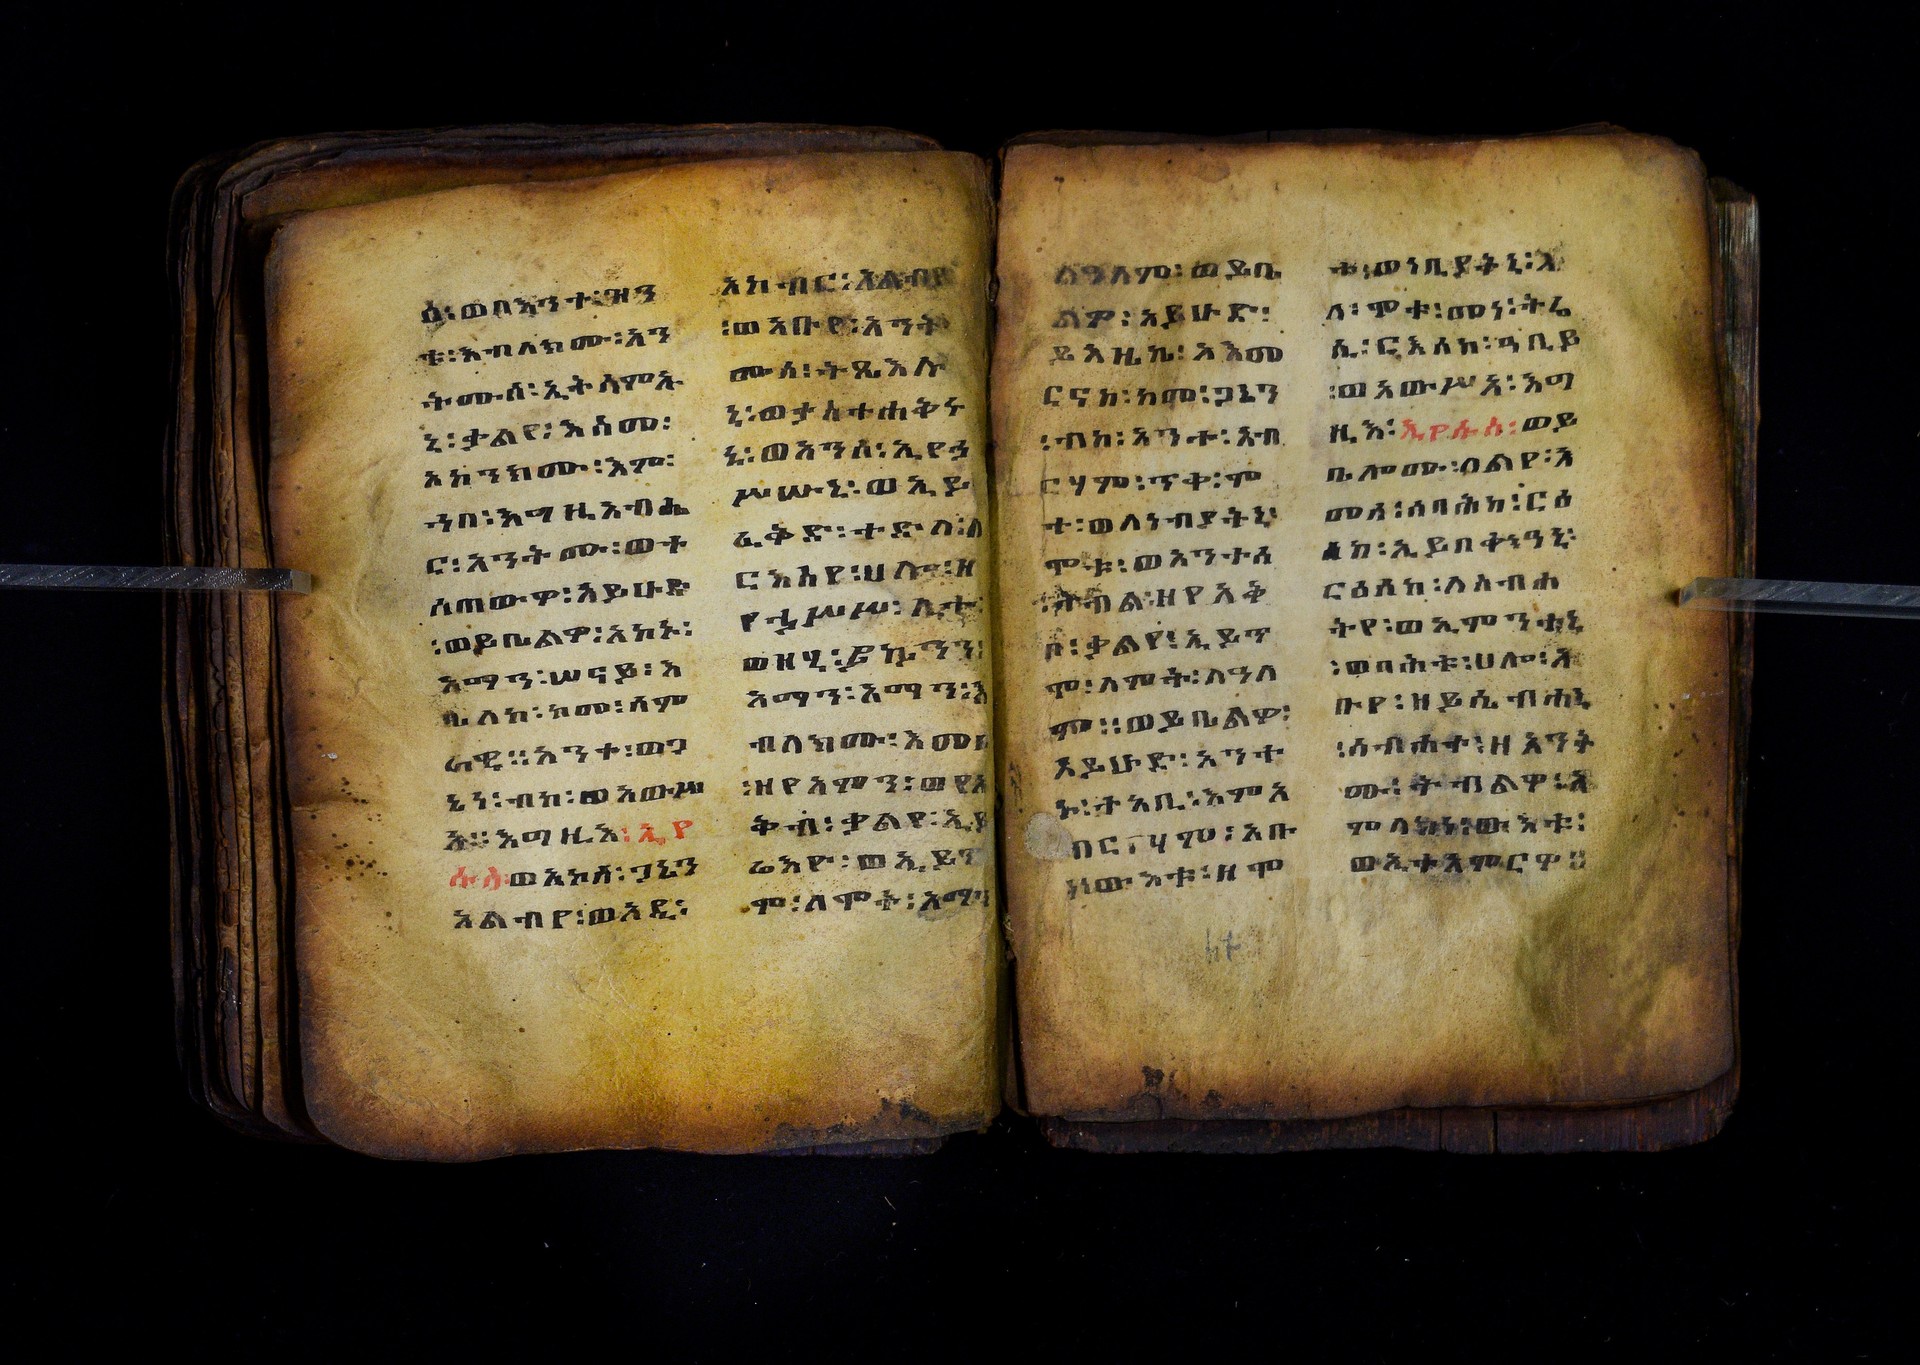 ዕ፡ወበእንተ፡ዝን
ቱ፡እብለክሙ፡አን
ትሙሰ፡ኢትሰምኡ
ኒ፡ቃልየ፡እስመ፡
አከንክሙ፡እም፡
ኀበ፡እግዚአብሔ
ር፡አንትሙ፡ወተ
ሰጠውዎ፡አይሁድ
፡ወይቤልዎ፡አከኑ፡
አማን፡ሠናይ፡እ
ቤለከ፡ከመ፡ሳም
ራዊ።አንተ፡ወጋ
ኔነ፡ብከ፡ወአውሥ
አ።እግዚእ፡ኢየ
ሱስ፡ወእክሰ፡ጋኔን
አልብየ፡ወአዲ፡
አከብር፡አልብየ
፡ወአቡየ፡አንት
ሙሰ፡ትጼእሉ
ኒ፡ወታስተሐቅሩ
ኒ፡ወአንሰ፡ኢየኃ
ሥሡኒ፡ወኢይ
ፈቅድ፡ተድላ፡ለ
ርእስየ፡ሀሎ፡ዘ
የኃሥሥ፡ሊተ፡
ወዘሂ፡ይኴንን፡
አማን፡አማን፡እ
ብለክሙ፡እመቦ
፡ዘየአምን፡ወየአ
ቅብ፡ቃልየ፡ኢይ
ሬእዮ፡ወኢይጥ
ሞ፡ለሞት፡አማን
ለዓለም፡ወይቤ
ልዎ፡አይሁድ፡
ይእዜኬ፡አእመ
ርናከ፡ከመ፡ጋኔን
፡ብከ፡አንተ፡አብ
ርሃም፡ጥቀ፡ሞ
ተ፡ወለነብያትኒ፡
ሞቱ፡ወአንተሰ
፡ትብል፡ዘየአቅ
ቦ፡ቃልየ፡ኢይጥ
ሞ፡ለሞት፡ለዓለ
ም፡፡ወይቤልዎ፡
አይሁድ፡አንተ
ኑ፡ተአቢ፡እምአ
ብርሃም፡አቡ
ነ፡ውእቱ፡ዘሞ
ቱ፡ወነቢያትኒ፡እ
ለ፡ሞቱ፡መነ፡ትሬ
ሲ፡ርእሰከ፡ዓቢይ
፡ወአውሥአ፡እግ
ዚእ፡ኢየሱስ፡ወይ
ቤሎሙ፡ዐልየ፡እ
መሰ፡ሰባሕከ፡ርዕ
ሰከ፡ኢይበቍዓኒ፡
ርዕሰከ፡ለስብሐ
ትየ፡ወኢምንቱኒ
፡ወባሕቱ፡ሀሎ፡አ
ቡየ፡ዘይሴብሐኒ
፡ስብሐተ፡ዘአንት
ሙ፡ትብልዎ፡አ
ምላክነ፡ውእቱ፡
ወኢተአምርዎ።